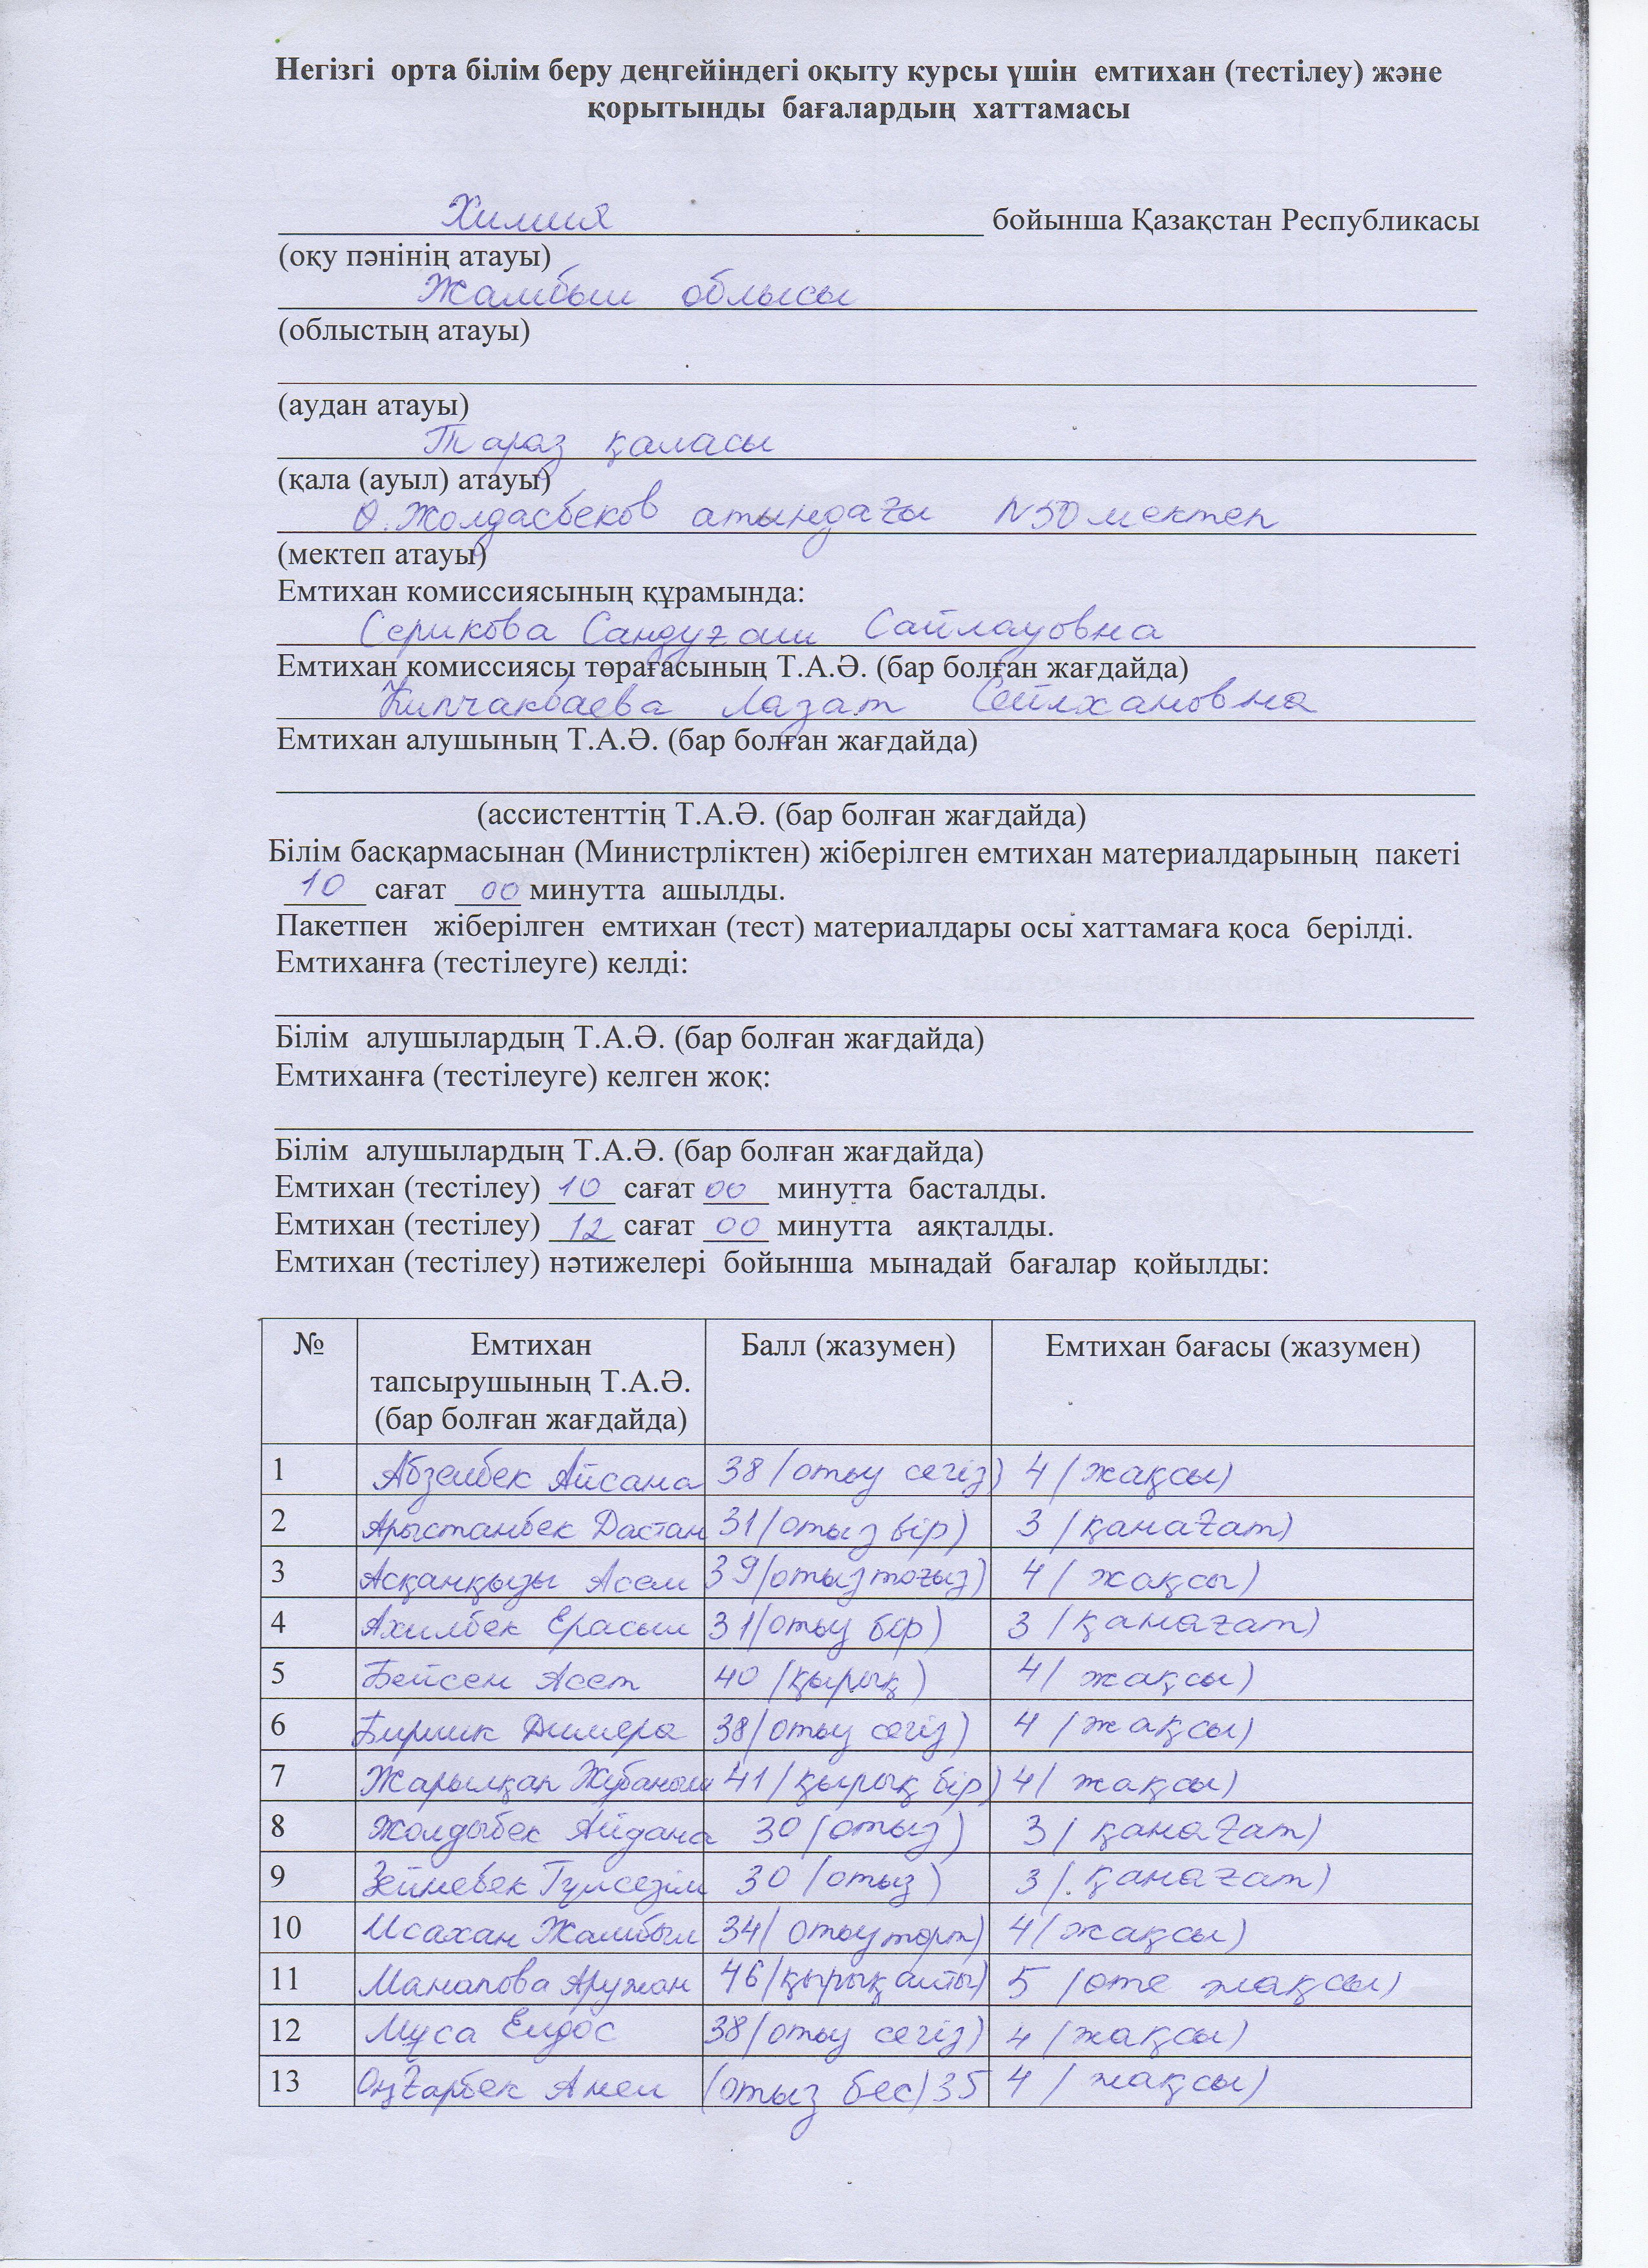 Негізгі орта білім беру деңгейіндегі оқыту курсы үшін емтихан (тестілеу) және
қорытынды бағалардың хаттамасы
Химия бойынша Қазақстан Республикасы
(оқу пәнінің атауы)
Жамбыл облысы
(облыстың атауы)
(аудан атауы)
Тараз қаласы
(қала (ауыл) атауы)
Ө.Жолдасбеков атындағы N50 мектеп
(мектеп атауы)
Емтихан комиссиясының құрамында:
Серикова Сандуғаш Сайлауовна
Емтихан комиссиясы төрағасының Т.А.Ә. (бар болған жағдайда)
Кипчакбаева Лазат Сейлхановна
Емтихан алушының Т.А.Ә. (бар болған жағдайда)
(ассистенттің Т.А.Ә. (бар болған жағдайда)
Білім басқармасынан (Министрліктен) жіберілген емтихан материалдарының пакеті
10 сағат 00 минутта ашылды.
Пакетпен жіберілген емтихан (тест) материалдары осы хаттамаға қоса берілді.
Емтиханға (тестілеуге) келді:
Білім алушылардың Т.А.Ә. (бар болған жағдайда)
Емтиханға (тестілеуге) келген жоқ:
Білім алушылардың Т.А.Ә. (бар болған жағдайда)
Емтихан (тестілеу) 10 сағат 00 минутта басталды.
Емтихан (тестілеу) 12 сағат 00 минутта аяқталды.
Емтихан (тестілеу) нәтижелері бойынша мынадай бағалар қойылды:
№ Емтихан Балл (жазумен) Емтихан бағасы (жазумен)
тапсырушының Т.А.Ә.
(бар болған жағдайда)
1 Абзелбек Айсана 38 (отыз сегіз) 4 (жақсы)
2 Арыстанбек Дастан 31 (отыз бір) 3 (қанағат)
3 Асқанқызы Асем 39 (отыз тоғыз) 4 (жақсы)
4 Ахилбек Ерасыл 31 (отыз бір) 3 (қанағат)
5 Бейсен Асет 40 (қырық) 4 (жақсы)
6 Бирлик Дилера 38 (отыз сегіз) 4 (жақсы)
7 Жарылқап Жұбаныш 41 (қырық бір) 4 (жақсы)
8 Жолдыбек Айдана 30 (отыз) 3 (қанағат)
9 Зейнебек Гүлсезім 30 (отыз) 3 (қанағат)
10 Исахан Жамбыл 34 (отыз төрт) 4 (жақсы)
11 Манапова Аружан 46 (қырық алты) 5 (өте жақсы)
12 Мұса Елдос 38 (отыз сегіз) 4 (жақсы)
13 Оңғарбек Анел (отыз бес) 35 4 (жақсы)